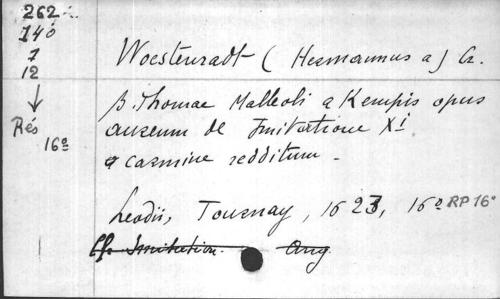 262
140
7
12
Rés
16º
Woestenradt (Hermannus a) Cr.
B. Thomae Malleoli a Kempis opus
aureum de Imitatione Xi
carmine redditum -
Leodii, Tournay, 1623, 16º RP 16º
Cfr Imitation. Ang